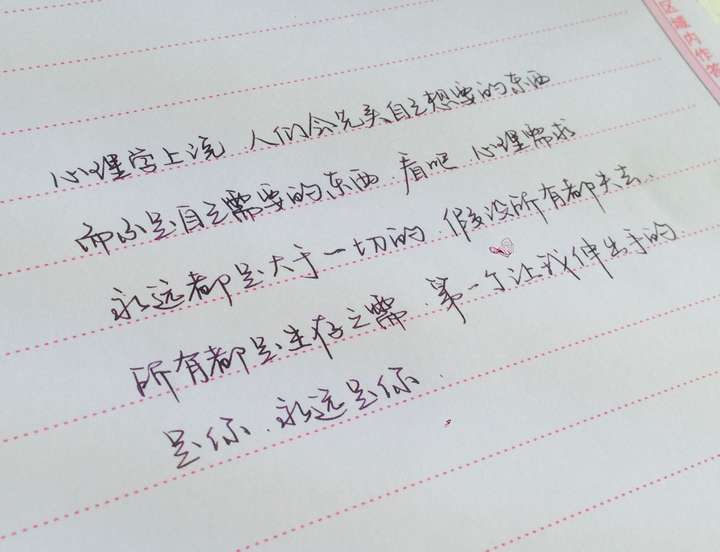 心理学上说 人们会先买自己想要的东西
而不是自己需要的东西 看吧 心理需求
永远都是大于一切的 假设所有都失去、
所有都是生存之需、第一个让我伸出手的
是你、永远是你.